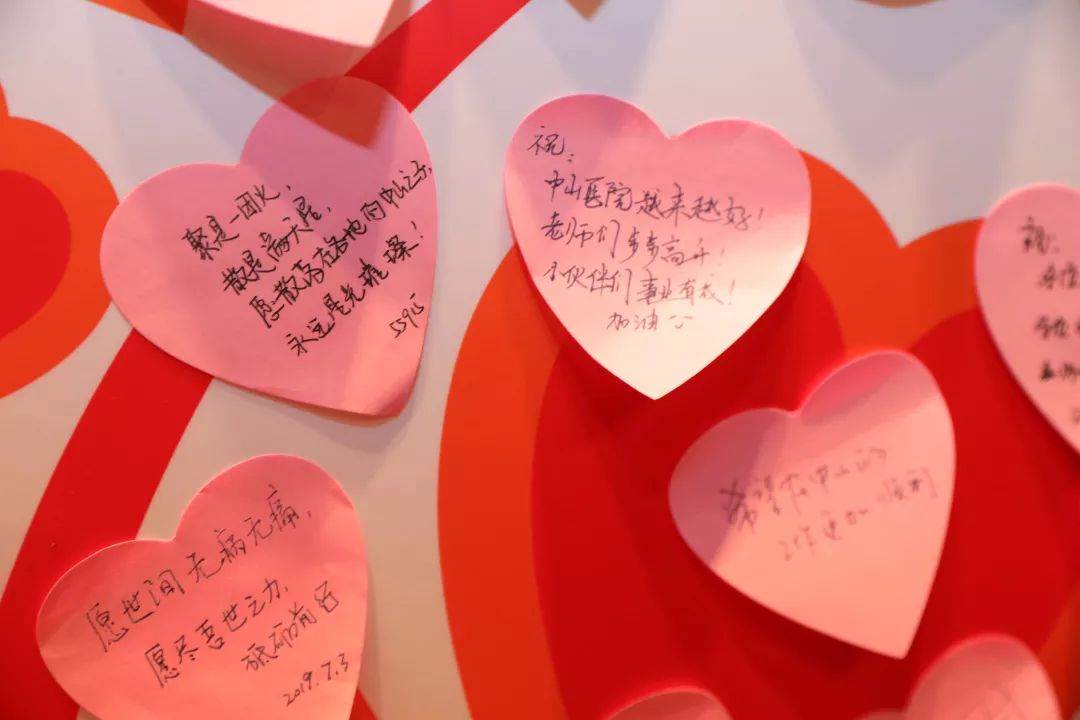 聚是一团火,
散是满天星,
愿散落在各地的中山之子,
永远是光璀璨!
5595
祝:
中山医院越来越好!
老师们步步高升!
小伙伴们事业有成!
加油
愿世间无病无痛,
愿尽吾世之力,
砥砺前行
2019.7.3
希望在中山的
工作更加顺利
祝: